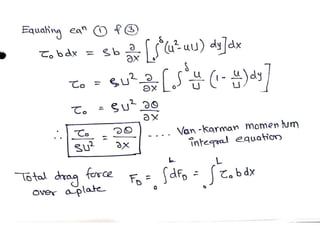 Equating eqⁿ ① & ③
τ₀ b dx = ρ b ∂/∂x [ ₀∫^δ (u² - uU) dy ] dx
τ₀ = ρU² ∂/∂x [ ₀∫^δ u/U (1 - u/U) dy ]
τ₀ = ρU² ∂θ/∂x
∴ τ₀/ρU² = ∂θ/∂x .... Van-Karman momentum
integral equation
Total drag force
over a plate F_D = ₀∫^L dF_D = ₀∫^L τ₀ b dx